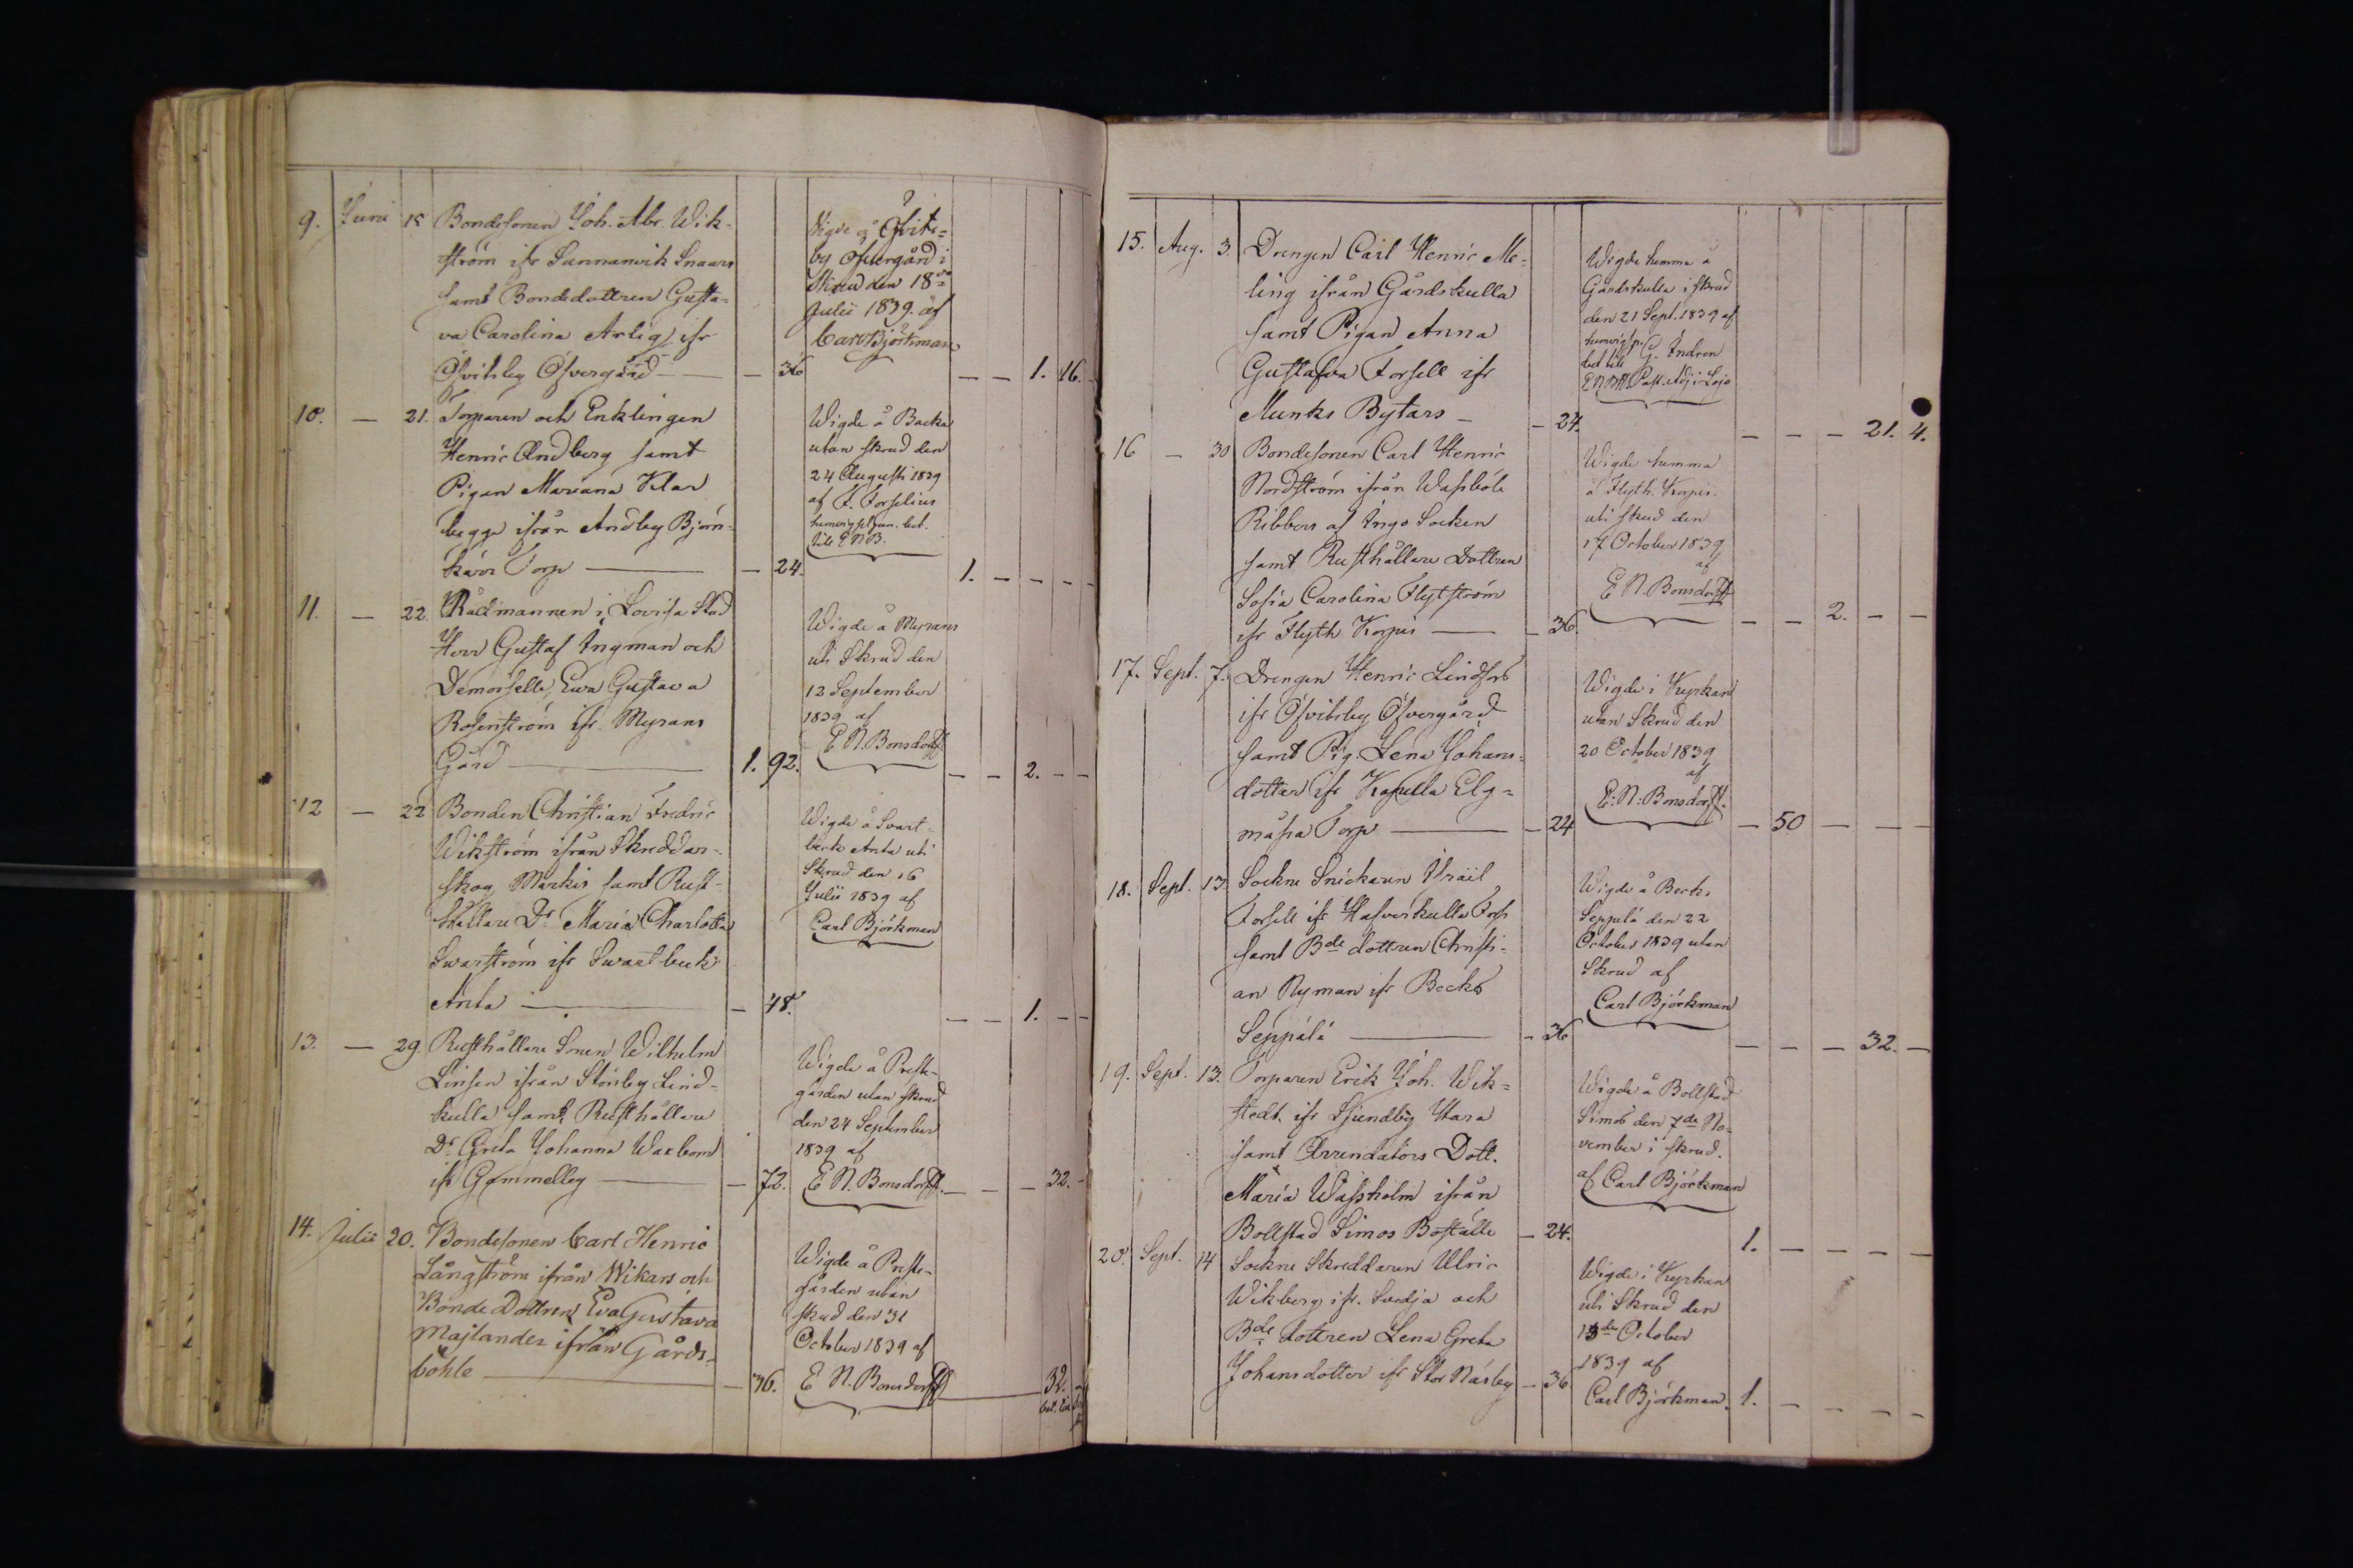 9. Juni 15 Bondesonen Joh. Abr. Wik-
ström ifr Sunnanvik Snaars
samt Bondedottren Gusta-
va Carolina Arlig ifr
Öfvitsby Öfvergård — — 36
Vigde å Öfvits-
by Öfvergård i
Skrud den 18de
Julii 1839. af
Carl Björkman
— — 1. 16. -
10. — 21. Torparen och Enklingen
Henric Andberg samt
Pigan Mariana Klar
begge ifrån Andby Björn-
kärr Torp — — 24.
Wigde å Backa
utan skrud den
24 Augusti 1839
af F. Forselius
till E N B.
1. — — — —
11. — 22. Rådmannen i Lovisa Stad
Herr Gustaf Ingman och
Demoiselle Ewa Gustava
Rosenström ifr. Myrans
Gård — 1. 92.
Wigde å Myrans
uti Skrud den
12 September
1839 af
E N. Bonsdorff
— — 2. — —
12 — 22 Bonden Christian Fredric
Wikström ifrån Skreddar-
skog Markis samt Rust-
hållare Dr Maria Charlotta
Swarström ifr Swartbeck
Anta — — 48.
Wigde å Svart-
beck Anta uti
Skrud den 16
Julii 1839 af
Carl Björkman
— — 1. — —
13. — 29. Rusthållare Sonen Wilhelm
Linsen ifrån Störsby Lind-
kulla samt Rusthållare
Dr Greta Johanna Waxbom
ifr Gammelby — — 72.
Wigde å Preste-
gården utan skrud
den 24 September
1839 af
E N. Bonsdorff.
— — — 32. -
14. Julii 20. Bondesonen Carl Henric
Långström ifrån Wikars och
Bonde Dottren Eva Gustava
Majlander ifrån Gårds-
böhle — — 36.
Wigde å Preste-
gården utan
skrud den 31
October 1839 af
E N. Bonsdorff
32. -
15. Aug. 3. Drengen Carl Henric Me-
ling ifrån Gårdskulla
samt Pigan Anna
Gustafva Forsell ifr
Munks Bytars — — 24.
Wigde hemma å
Gårdskulla i skrud
den 21 Sept. 1839 af
G. Indren
Past. Adj. i Lojo
— — — 21. 4.
16 — 30 Bondesonen Carl Henric
Nordström ifrån Wassböle
Ribbors af Ingo Socken
samt Rusthållare Dottren
Sofia Carolina Flytström
ifr Flyth Korpis — — 36.
Wigde hemma
å Flyth Korpis
uti skrud den
17 October 1839
af
E N. Bonsdorff
— — 2. — —
17. Sept. 7. Drengen Henric Lindfors
ifr Öfvitsby Öfvergård
samt Pig. Lena Johans-
dotter ifr Kapella Elg-
måssa Torp — — 24
Wigde i Kyrkan
utan Skrud den
20 October 1839
af
E. N: Bonsdorff.
— 50 — — —
18. Sept. 13. Sockne Snickaren Israil
Forsell ifr Hafverkulla Fors
samt Bde dottren Christi-
an Nyman ifr Becks
Seppälä — — 36
Wigde å Becks
Seppälä den 22
October 1839 utan
Skrud af
Carl Björkman
— — — 32. —
19. Sept. 13. Torparen Erik Joh. Wik-
stedt. ifr Sjundby Stara
samt Arrendators Dott.
Maria Wassholm ifrån
Bollstad Simos Boställe — 24.
Wigde å Bollstad
Simos den 7de No-
vember i skrud.
af Carl Björkman
1. — — — —
20. Sept. 14 Sockne Skreddaren Ulric
Wikberg ifr. Svedja och
Bde dottren Lena Greta
Johansdotter ifr Stor Näsby — 36
Wigde i Kyrkan
uti Skrud den
13de October
1839 af
Carl Björkman.
1. — — — —